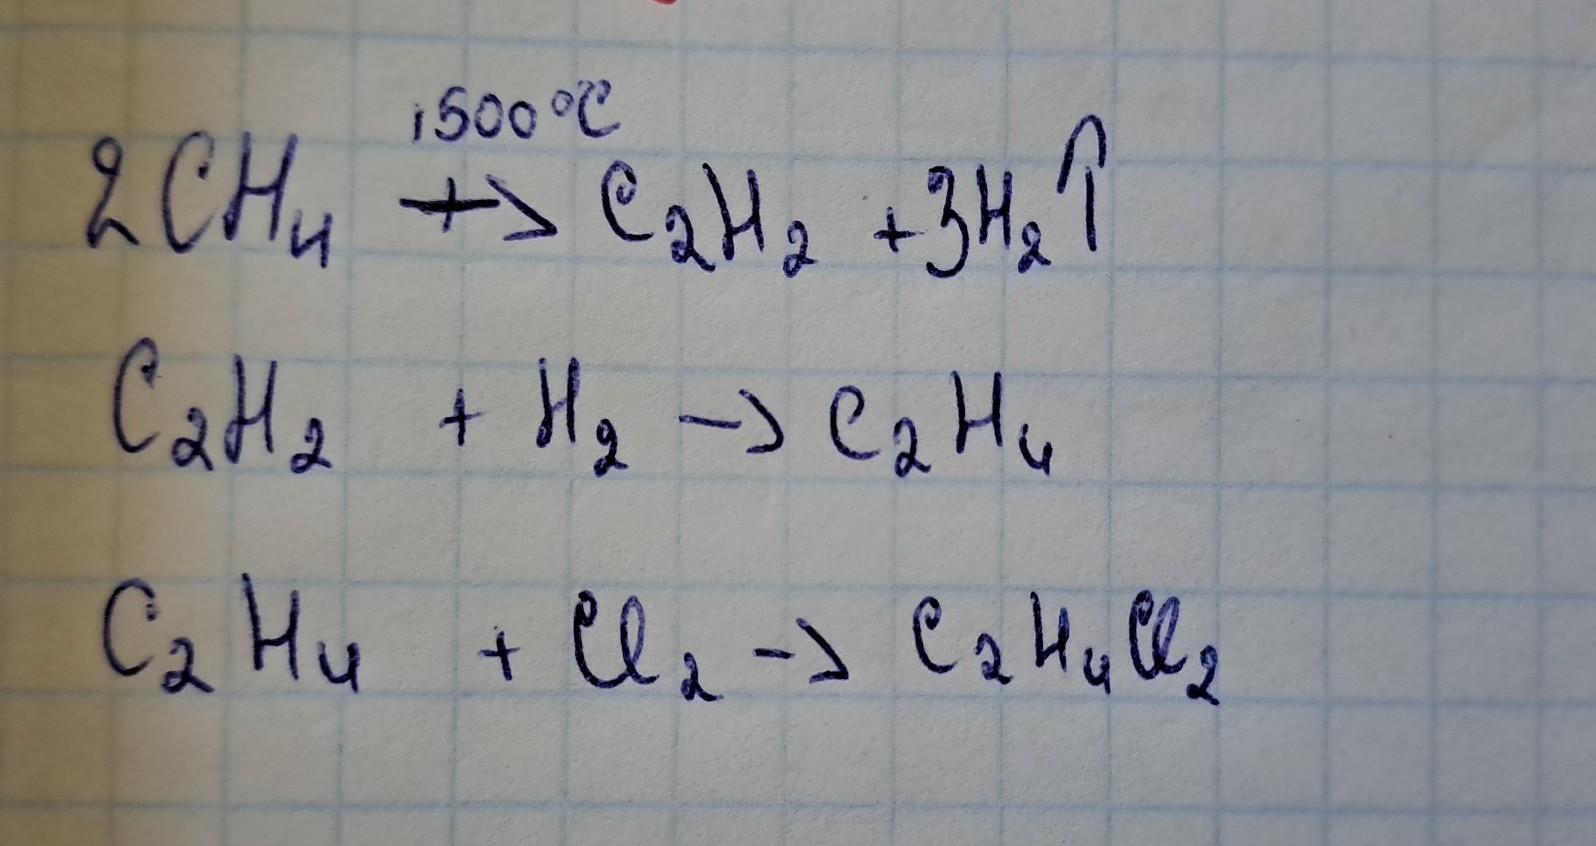 1500°C
2CH₄ → C₂H₂ + 3H₂↑
C₂H₂ + H₂ → C₂H₄
C₂H₄ + Cl₂ → C₂H₄Cl₂